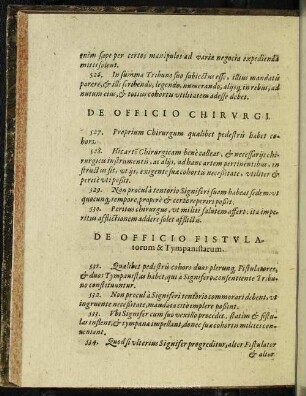 enim sæpe per certos manipulos ad varia negocia expediendâ
mitti solent.
526. In summa Tribuno suo subiectus esse, illius mandatis
parere, & illi scribendo, legendo, numerando, alijsq; in rebus, ad
nutum eius, & totius cohortis vtilitatem adesse debet.
DE OFFICIO CHIRVRGI.
527. Proprium Chirurgum quælibet pedestris habet co-
hors.
528. Hic artē Chirurgicam bene calleat, & necessarijs chi-
rurgicis instrumentis, ac alijs, ad hanc artem pertinentibus, in-
structus sit, vt ijs, exigente sua cohortis necessitate, vtiliter &
peritè vti possit.
529. Non procul à tentorio Signiferi suam habeat sedem, vt
quocunq; tempore, properè & certò reperiri possit.
530. Peritus chirurgus, vt militi salutem affert, ita impe-
ritus afflictionem addere solet afflictis.
DE OFFICIO FISTVLA-
torum & Tympanistarum.
531. Quælibet pedestris cohors duos plerunq; Fistulatores,
& duos Tympanistas habet, qui à Signifero, consentiente Tribu-
no constituuntur.
532. Non procul à Signiferi tentorio commorari debent, vt
ingruente necessitate, mandata citò implere possent.
533. Vbi Signifer cum suo vexillo procedit, statim & fistu-
las inflent, & tympana impellant, donec sua cohortis milites con-
ueniant.
534. Quod si vlterius Signifer progreditur, alter Fistulator
& alter